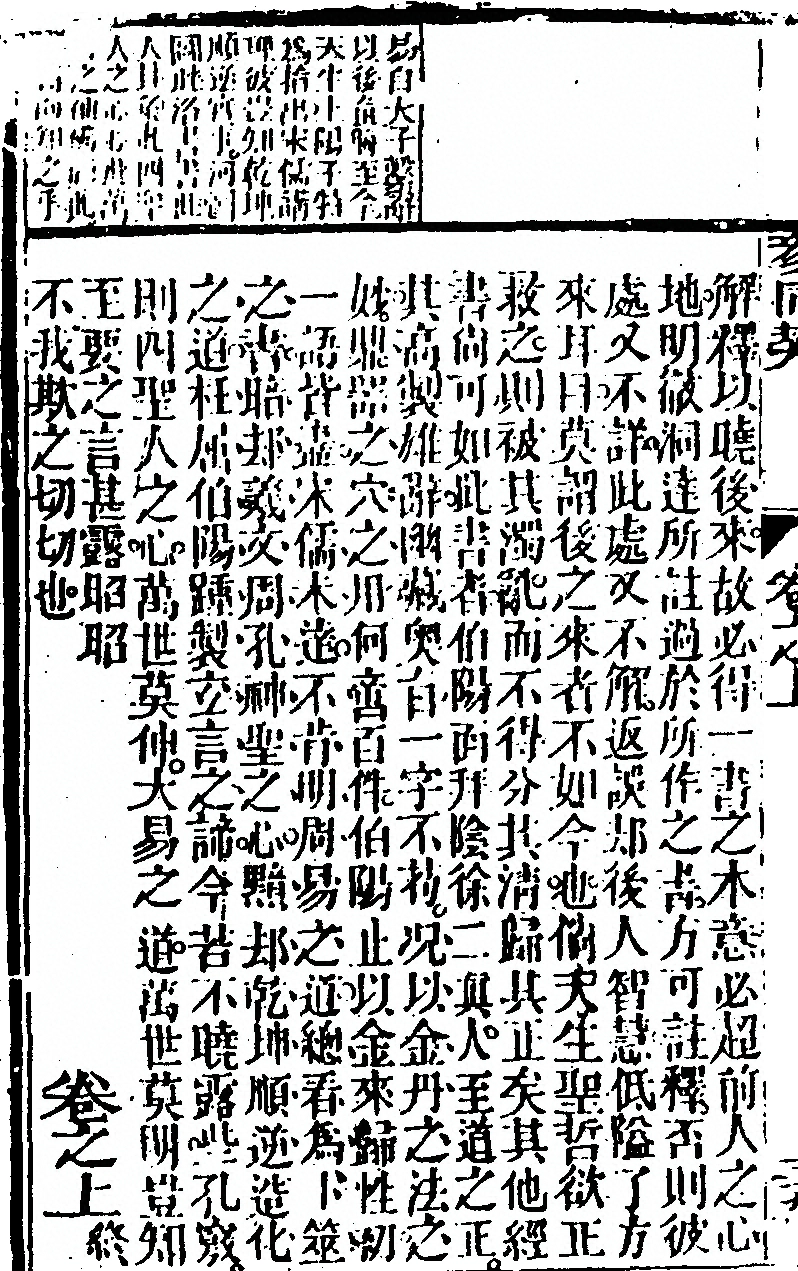 參同契
卷上
易自夫子繫辭
以後負晦至今
天生上陽子特
為拾出宋儒謂
理彼豈知乾坤
順逆實事河圖
圖此洛書書此
人之心也
之乎
解釋以曉後來故必得一書之本意必超前人之心
地明徹洞達所註過於所作之書方可註釋否則彼
處又不詳此處又不解返誤却後人智慧低隘了方
來耳目莫謂後之來者不如今也倘天生聖哲欲正
救之則被其濁亂而不得分其清歸其正矣其他經
書尚可如此書者伯陽面拜陰徐二真人至道之正
其高製雄辭幽藏奧自一字不苟况以金丹之法之
妙鼎器之穴之用何啻百件伯陽止以金來歸性初
一語皆盡宋儒未達不肯明周易之道總看為卜筮
之書暗却羲文周孔神聖之心黯却乾坤順逆造化
之道枉屈伯陽踵製立言之諦今若不曉露些孔竅
則四聖人之心萬世莫伸大易之道萬世莫明豈知
至要之言甚露昭昭
不我欺之切切也
卷之上終